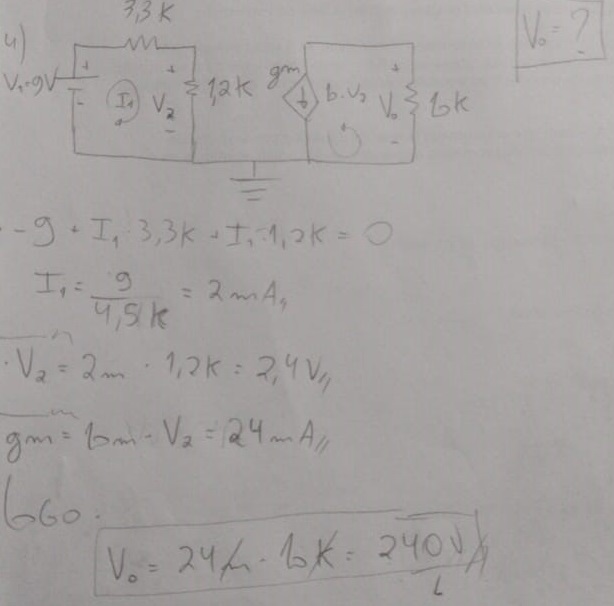 3,3K
4)
V₀ = ?
V₁=9V
+
-
I₁
+
V₂
-
1,2K
gm
10.V₂
+
V₀
-
10K
-9 + I₁·3,3K + I₁·1,2K = 0
I₁ = 9/4,5K = 2mA,
V₂ = 2m · 1,2K = 2,4V//
gm = 10m · V₂ = 24mA//
LOGO.
V₀ = 24m · 10K = 240V//